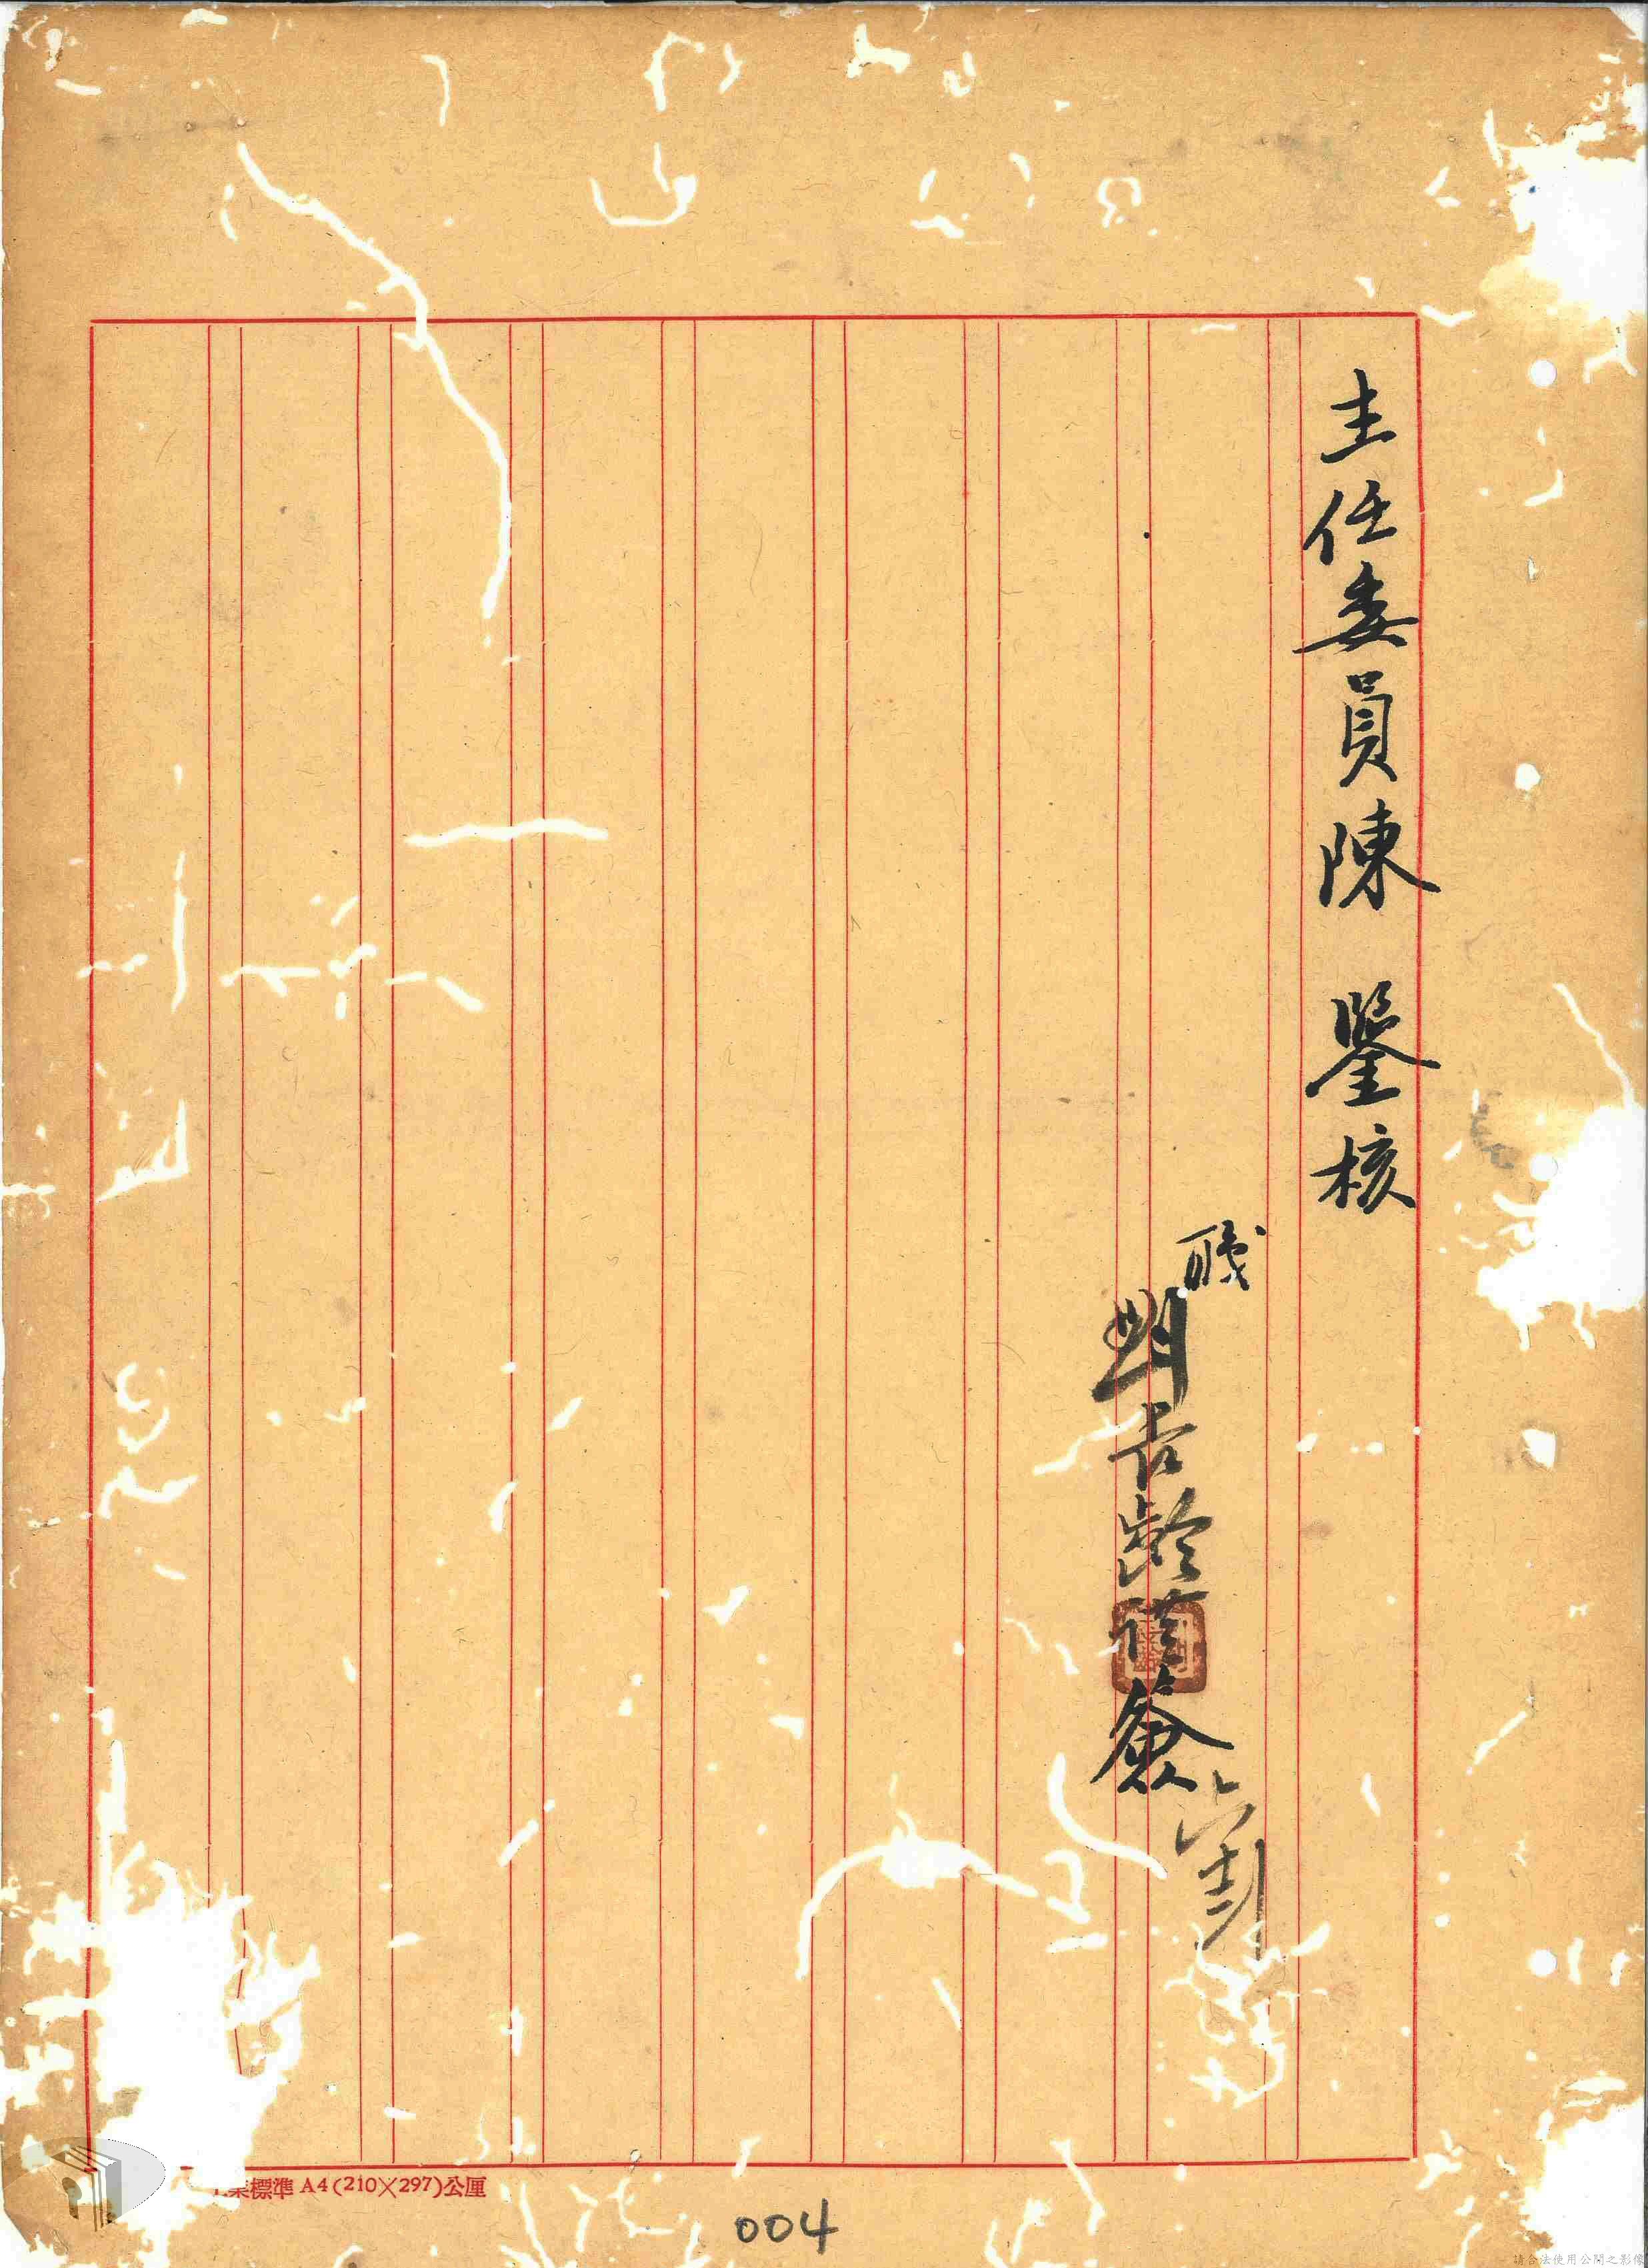 主任委員陳 鑒核
職
吉齡謹簽
業標準 A4(210×297)公厘
004
請合法使用公開之影像